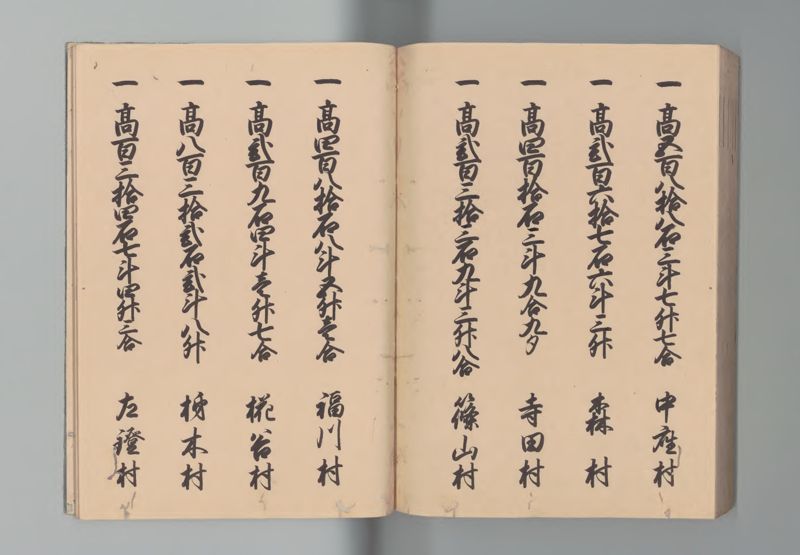 一 高五百八拾八石三斗七升七合 中座村
一 高弐百六拾七石六斗三升 森村
一 高四百拾石三斗九合九夕 寺田村
一 高弐百三拾三石九斗三升八合 篠山村
一 高四百八拾石八斗五升壱合 福川村
一 高弐百九石四斗壱升七合 椛谷村
一 高八百三拾弐石弐斗八升 木村
一 高百三拾四石七斗四升三合 左鐙村